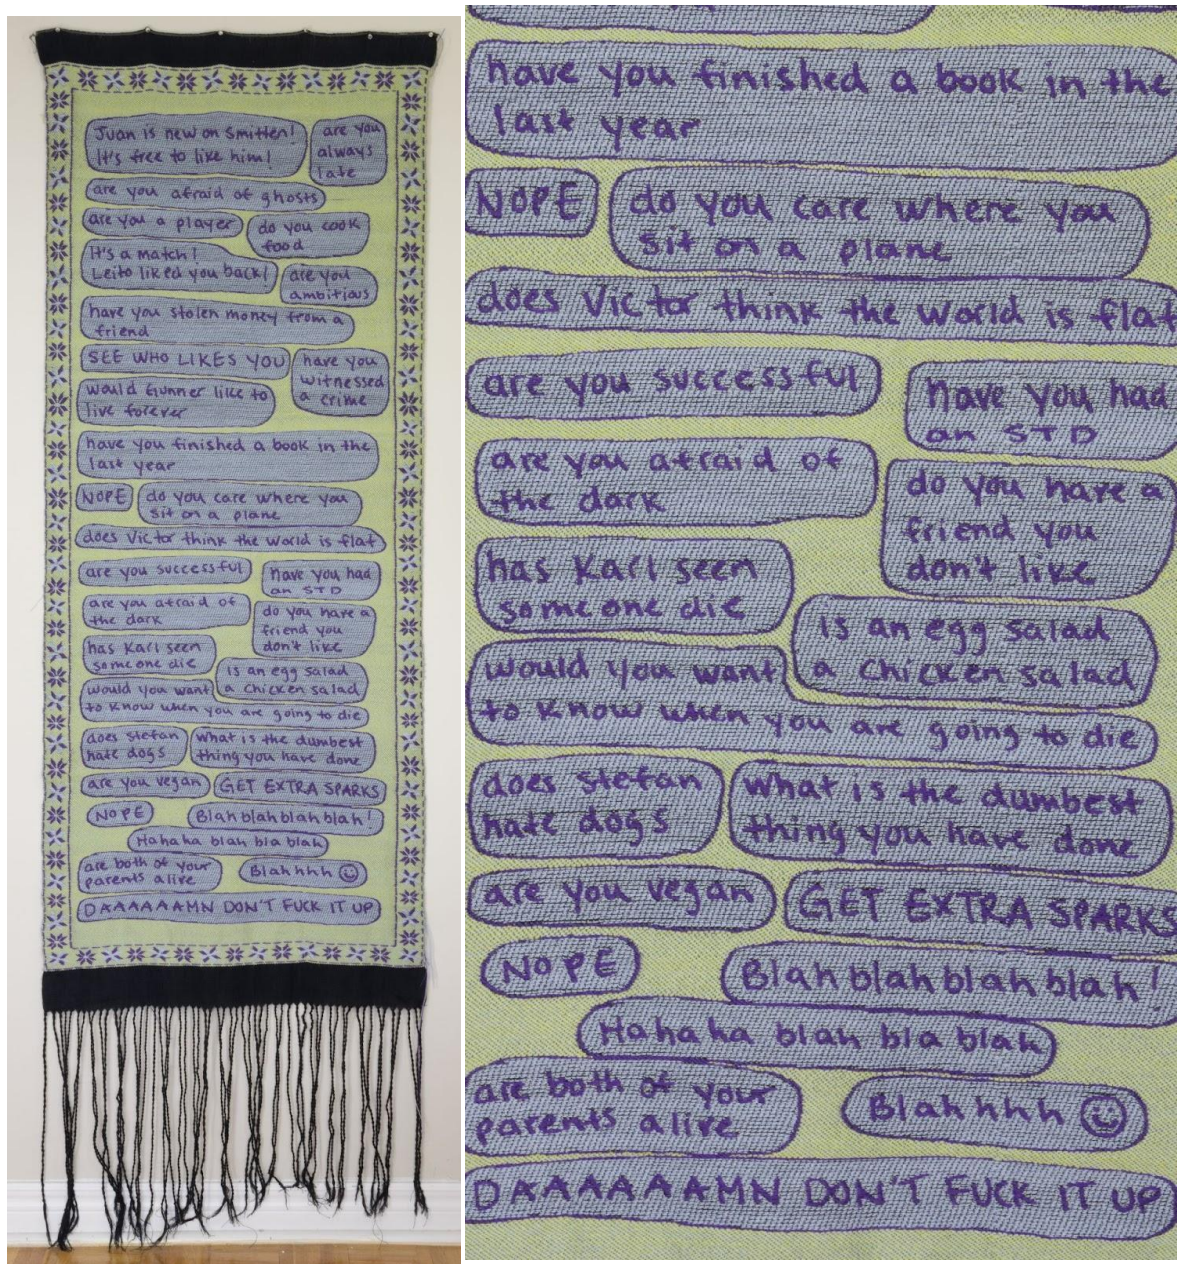 Juan is new on Smitten!
It's free to like him!
are you
always
late
are you afraid of ghosts
are you a player
do you cook
food
It's a match!
Leito liked you back!
are you
ambitious
have you stolen money from a
friend
SEE WHO LIKES YOU
have you
witnessed
a crime
would Gunner like to
live forever
have you finished a book in the
last year
NOPE
do you care where you
sit on a plane
does Victor think the world is flat
are you successful
have you had
an STD
are you afraid of
the dark
do you have a
friend you
don't like
has Karl seen
someone die
is an egg salad
a chicken salad
would you want
to know when you are going to die
does stefan
hate dogs
what is the dumbest
thing you have done
are you vegan
GET EXTRA SPARKS
NOPE
Blah blah blah blah!
Hahaha blah bla blah
are both of your
parents alive
Blahhhh
DAAAAAAMN DON'T FUCK IT UP
have you finished a book in the
last year
NOPE
do you care where you
sit on a plane
does Victor think the world is flat
are you successful
have you had
an STD
are you afraid of
the dark
do you have a
friend you
don't like
has Karl seen
someone die
is an egg salad
a chicken salad
would you want
to know when you are going to die
does stefan
hate dogs
what is the dumbest
thing you have done
are you vegan
GET EXTRA SPARKS
NOPE
Blah blah blah blah!
Hahaha blah bla blah
are both of your
parents alive
Blahhhh
DAAAAAAMN DON'T FUCK IT UP